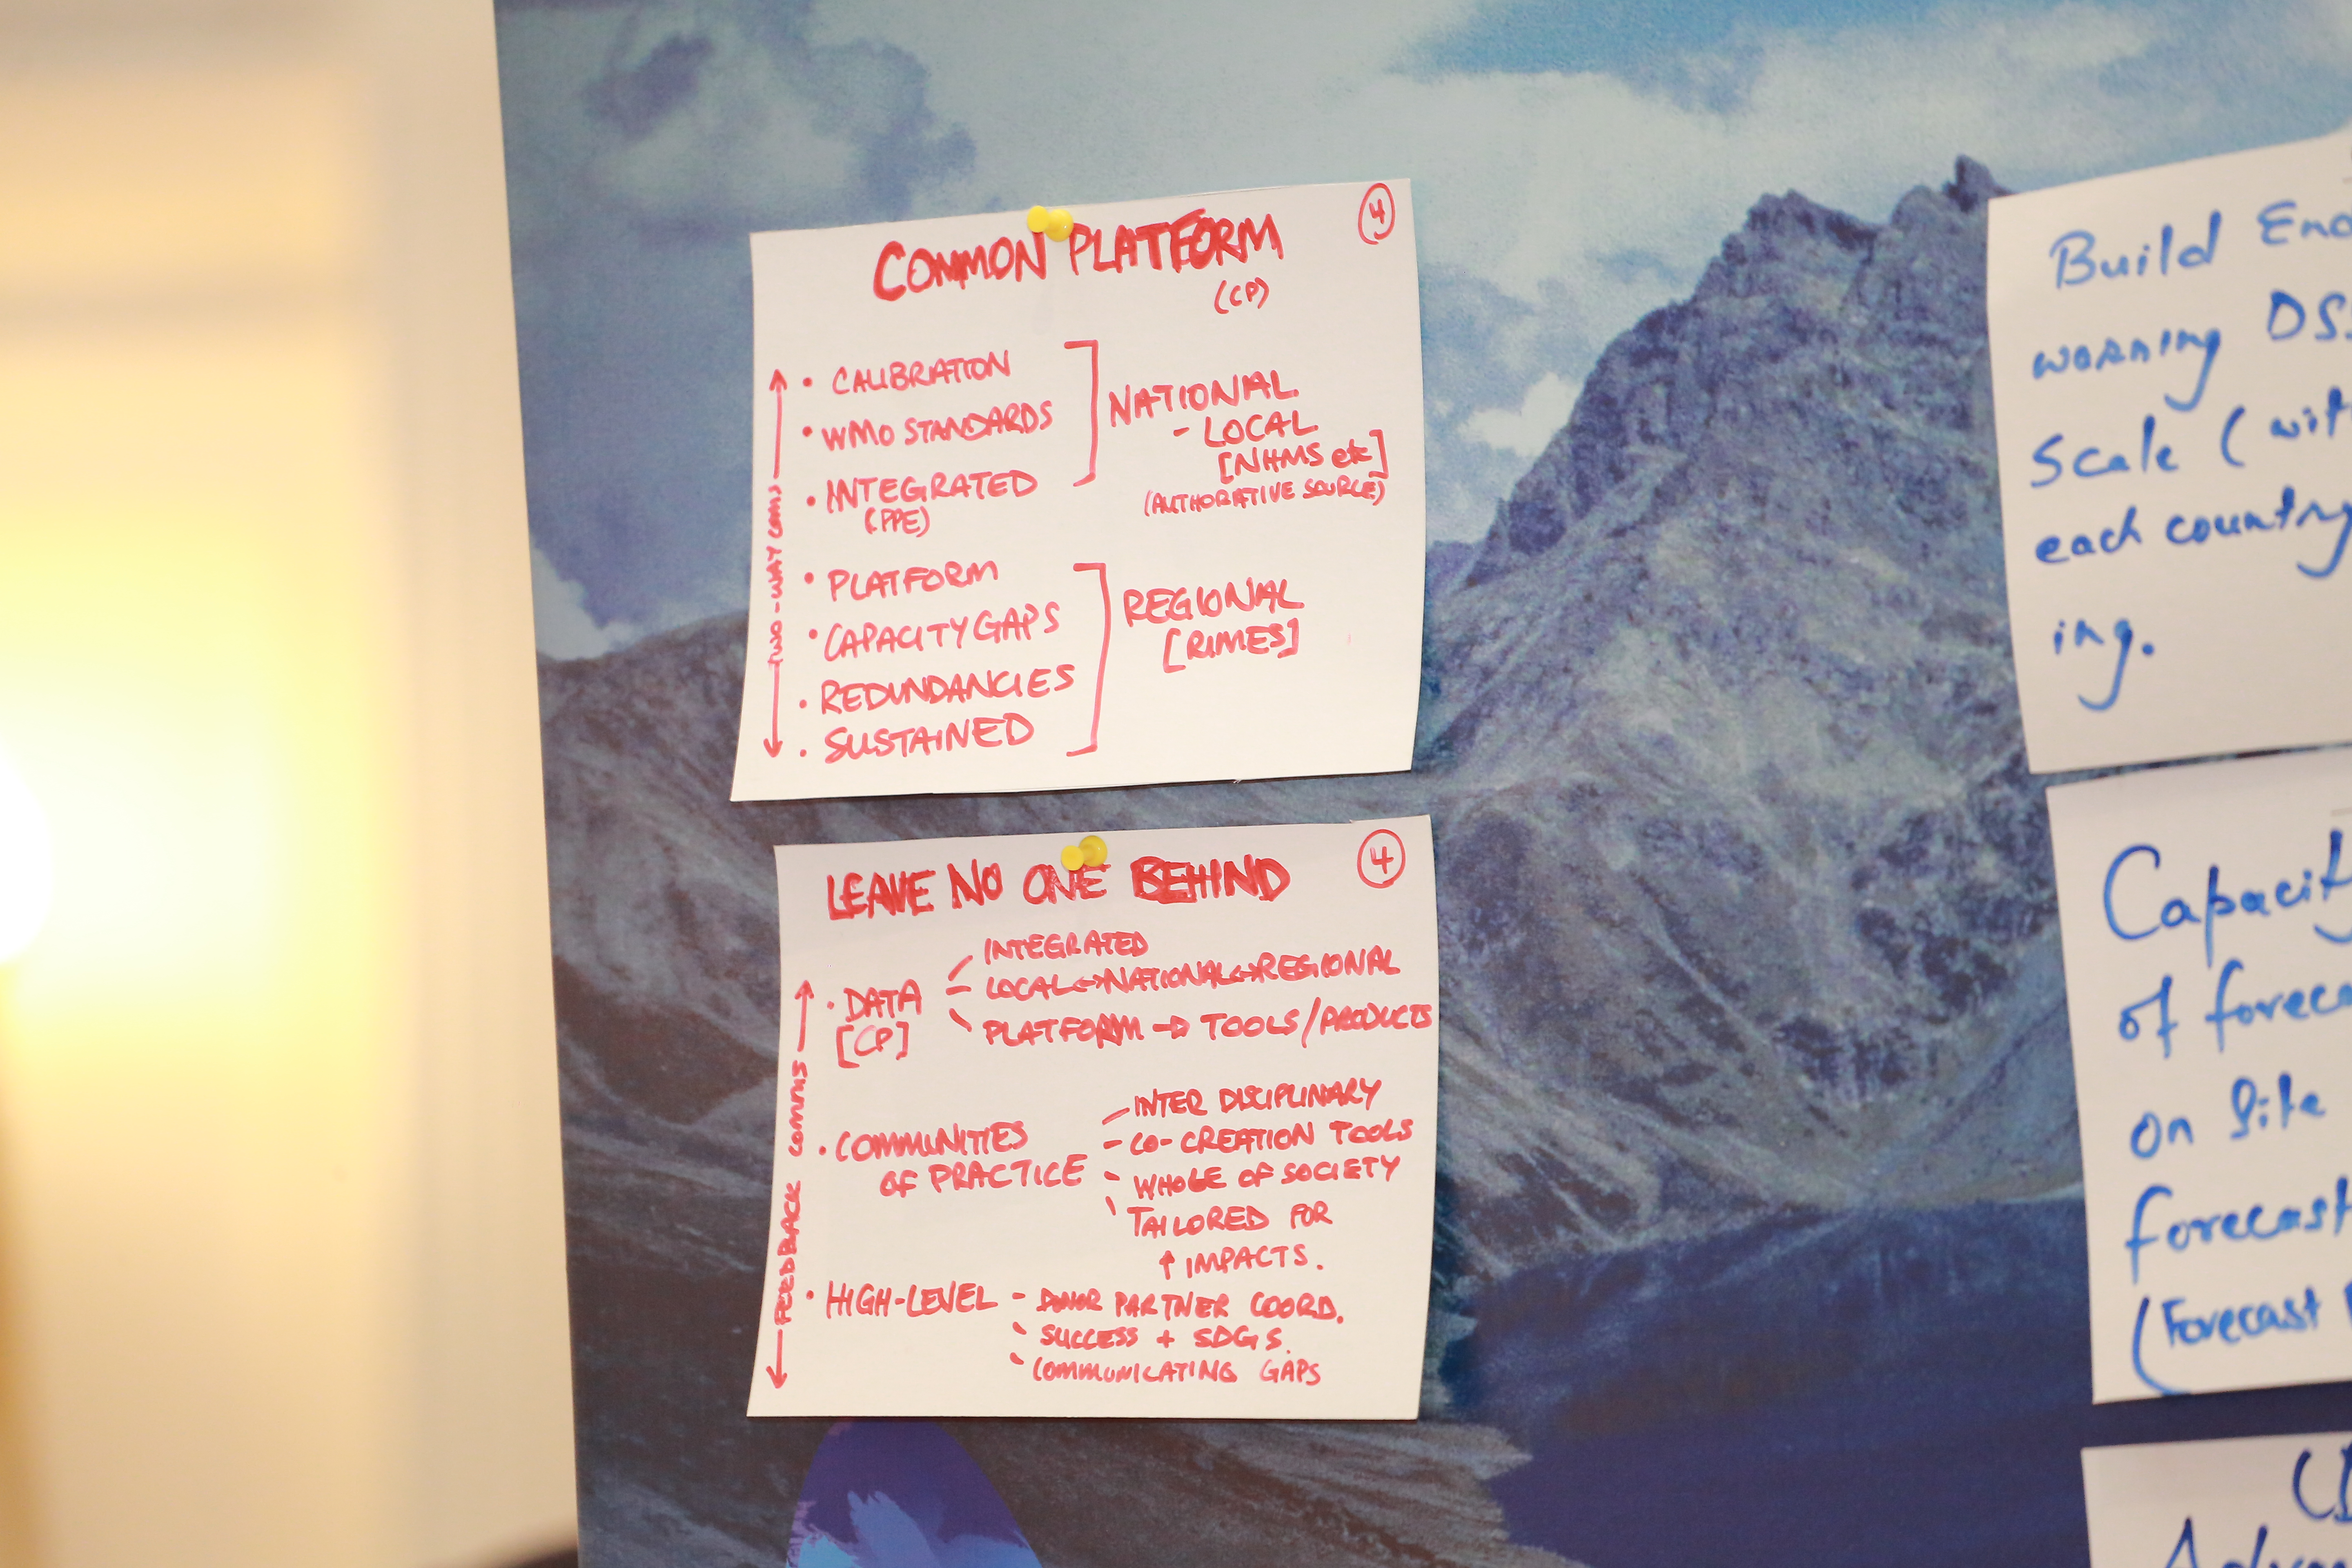 COMMON PLATFORM
(CP)
4
TWO-WAY COMMS
• CALIBRATION
• WMO STANDARDS
• INTEGRATED
(PPE)
NATIONAL
- LOCAL
[NHMS etc]
(AUTHORATIVE SOURCE)
• PLATFORM
• CAPACITY GAPS
• REDUNDANCIES
• SUSTAINED
REGIONAL
[RIMES]
LEAVE NO ONE BEHIND
4
FEEDBACK COMMS
• DATA
[CP]
INTEGRATED
LOCAL↔NATIONAL↔REGIONAL
PLATFORM → TOOLS/PRODUCTS
• COMMUNITIES
OF PRACTICE
INTER DISCIPLINARY
- CO-CREATION TOOLS
- WHOLE OF SOCIETY
TAILORED FOR
↑ IMPACTS.
• HIGH-LEVEL
- DONOR PARTNER COORD.
- SUCCESS + SDGS.
- COMMUNICATING GAPS
Build
warning
Scale (
each country
ing.
of
on Site
forecast
(Forecast